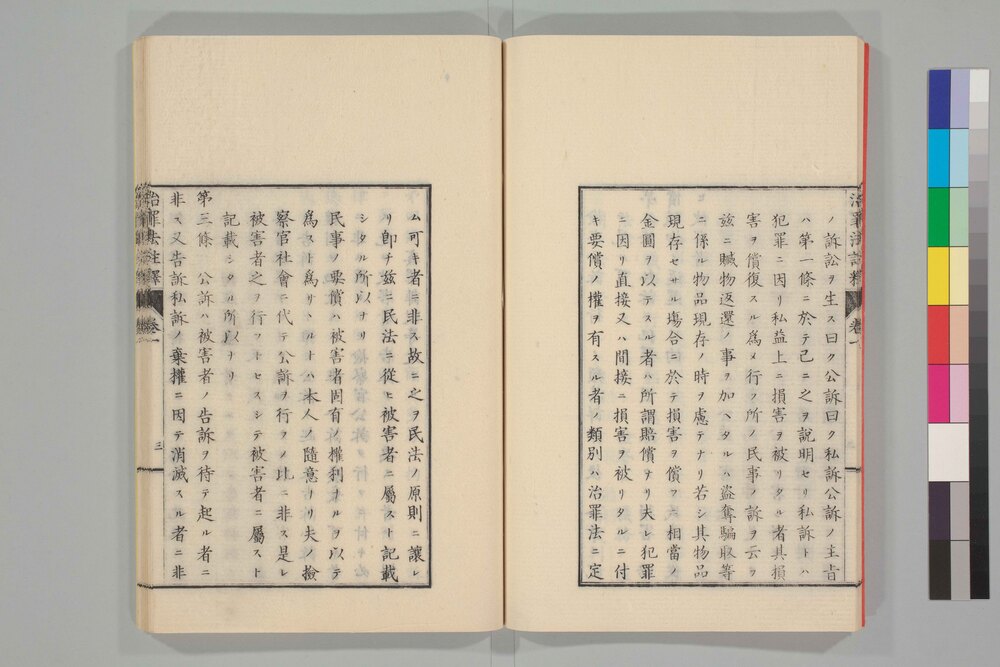 治罪法註釋 卷一
ノ訴訟ヲ生ス曰ク公訴曰ク私訴公訴ノ主旨
ハ第一條ニ於テ已ニ之ヲ説明セリ私訴トハ
犯罪ニ因リ私益上ニ損害ヲ被リタル者其損
害ヲ償復スル爲メ行フ所ノ民事ノ訴ヲ云フ
玆ニ贓物返還ノ事ヲ加ヘタルハ盜奪騙取等
ニ係ル物品現存ノ時ヲ慮テナリ若シ其物品
現存セサル塲合ニ於テ損害ヲ償フニ相當ノ
金圓ヲ以テスル者ハ所謂賠償ナリ夫レ犯罪
ニ因リ直接又ハ間接ニ損害ヲ被リタルニ付
キ要償ノ權ヲ有スル者ノ類別ハ治罪法ニ定
ム可キ者ニ非ス故ニ之ヲ民法ノ原則ニ讓レ
リ卽チ玆ニ民法ニ從ヒ被害者ニ屬スト記載
シタル所以ナリ
民事ノ要償ハ被害者固有ノ權利ナルヲ以テ
爲スト爲サヽルトハ本人ノ隨意ナリ夫ノ檢
察官社會ニ代テ公訴ヲ行フノ比ニ非ス是レ
被害者之ヲ行フトセスシテ被害者ニ屬スト
記載シタル所以ナリ
第三條 公訴ハ被害者ノ告訴ヲ待テ起ル者ニ
非ス又告訴私訴ノ棄權ニ因テ消滅スル者ニ非
治罪法註釋 卷一 三